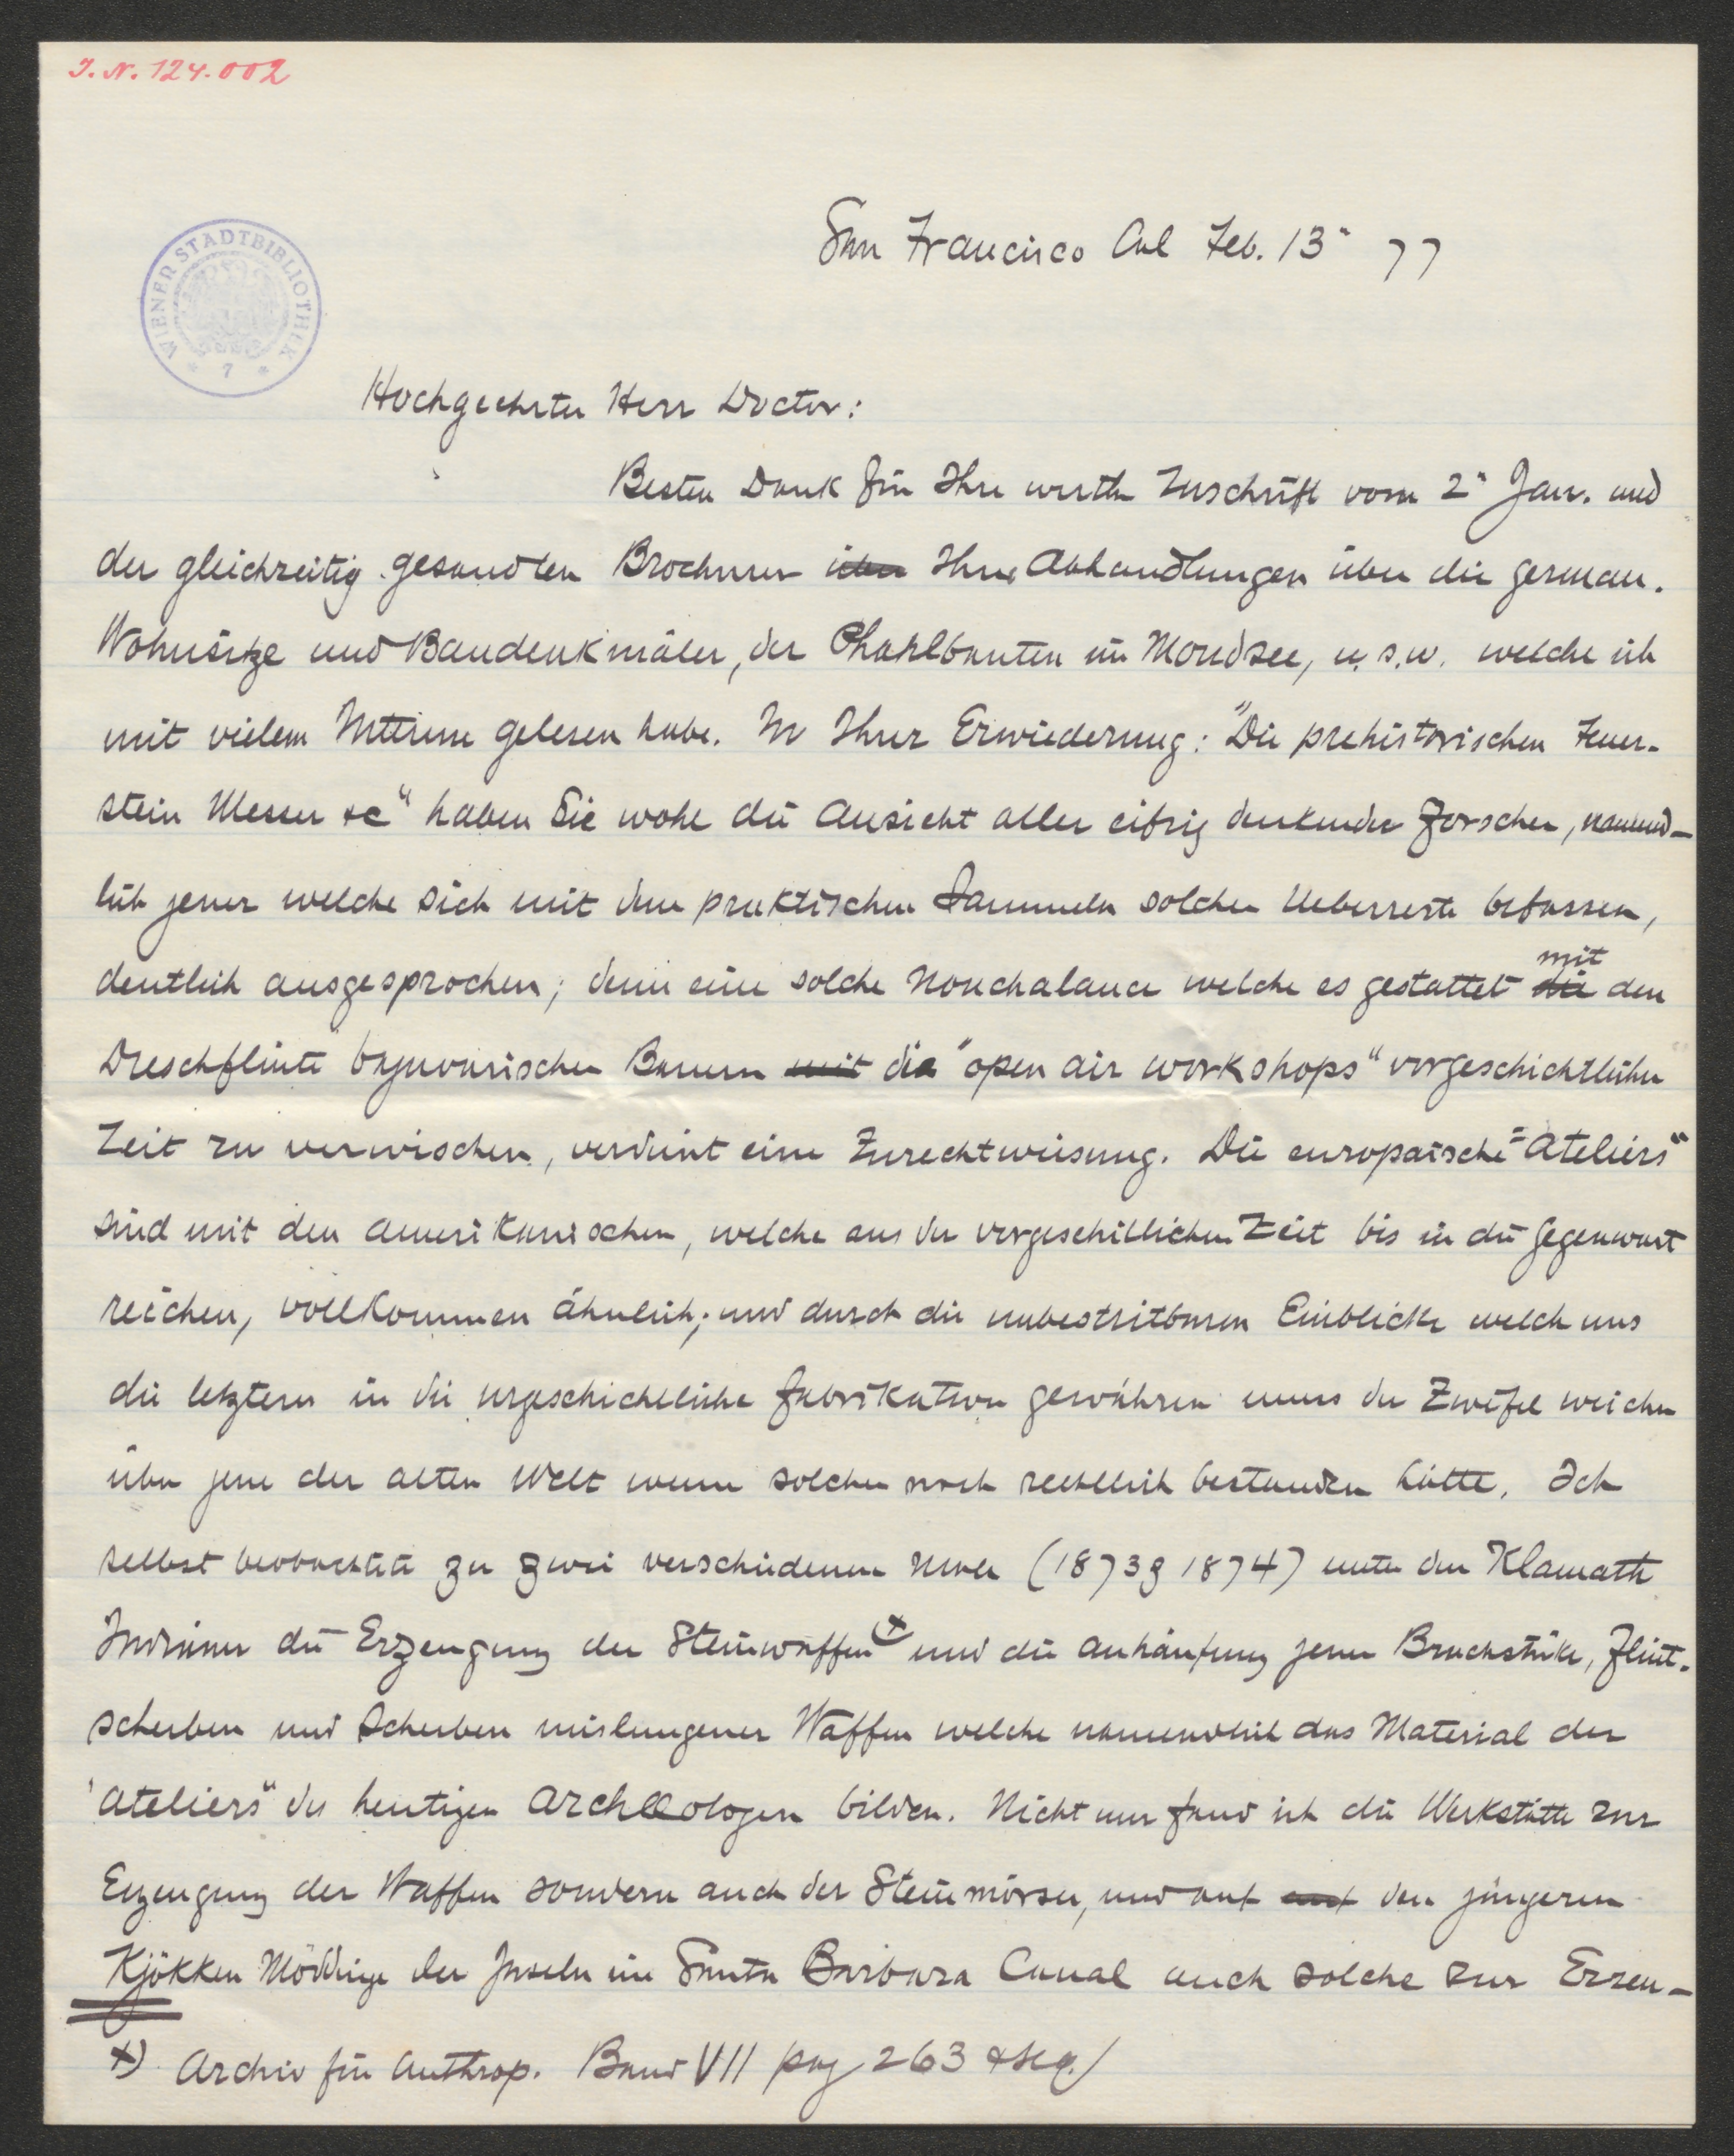 I. N. 124.002
WIENER STADTBIBLIOTHEK
* 7 *
San Francisco Cal Feb. 13" 77
Hochgeehrter Herr Doctor:
Besten Dank für Ihre werthe Zuschrift vom 2" Jan. und
der gleichzeitig gesandten Brochuren über Ihre Abhandlungen über die german.
Wohnsitze und Baudenkmäler, der Phahlbauten im Mondsee, u. s. w. welche ich
mit vielem Interesse gelesen habe. In Ihrer Erwiederung: "Die prehistorischen Feuer-
stein Messer &c" haben Sie wohl die Ansicht aller eifrig denkender Forscher, namend-
lich jener welche sich mit dem praktischen Sammeln solcher Ueberreste befassen,
deutlich ausgesprochen; denn eine solche Nonchalance welche es gestattet die mit den
Dreschflinte bayuvarischer Bauern mit die "open air workshops" vorgeschichtlicher
Zeit zu verwischen, verdient eine Zurechtweisung. Die europäische "Ateliers"
sind mit den amerikanischen, welche aus der vorgeschitlichen Zeit bis in die Gegenwart
reichen, vollkommen ähnlich; und durch die unbestritbaren Einblicke welch uns
die letztern in die urgeschichtliche Fabrikation gewähren muss der Zweifel weichen
über jene der alten Welt wenn solcher noch rechtlich bestanden hätte. Ich
selbst beobachtete zu zwei verschiedenen Malen (1873 & 1874) unter den Klamath
Indianer die Erzeugung der Steinwaffen +) und die Anhäufung jener Bruchstüke, Flint-
scherben und Scherben mislungener Waffen welche namendlich das Material der
"Ateliers" des heutigen Archæologen bilden. Nicht nur fand ich die Werkstätte zur
Erzeugung der Waffen sondern auch der Steinmörser, und auf auf den jüngeren
Kjökken Möddinge der Inseln im Santa Barbara Canal auch solche zur Erzeu-
+) Archiv für Anthrop. Band VII pag 263 & seq.)